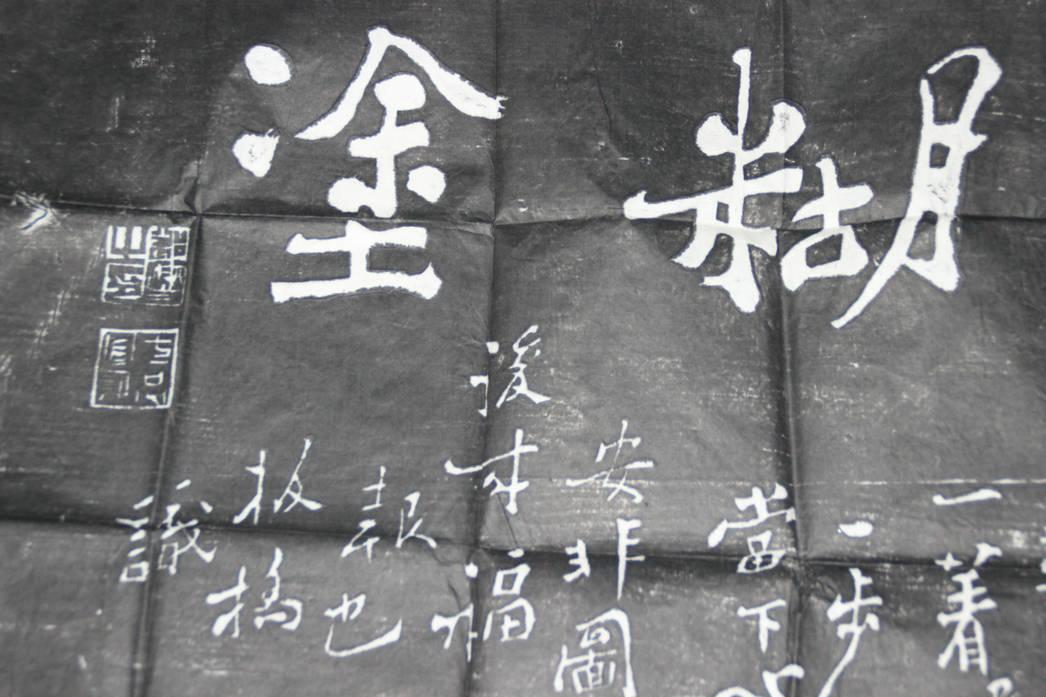 糊塗
一著
一步
當下心
安非圖
後來福
報也
板橋
識